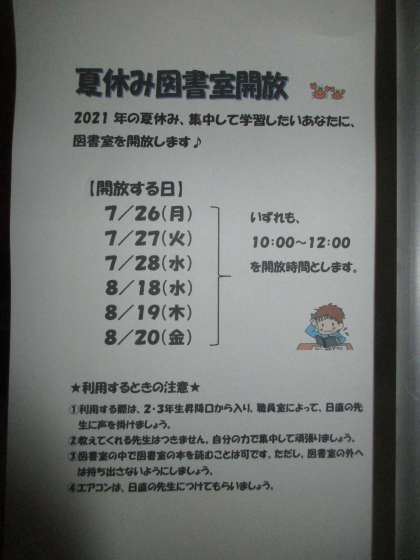 夏休み図書室開放
2021年の夏休み、集中して学習したいあなたに、
図書室を開放します♪
【開放する日】
7/26(月)
7/27(火)
7/28(水)
8/18(水)
8/19(木)
8/20(金)
いずれも、
10:00～12:00
を開放時間とします。
★利用するときの注意★
①利用する際は、2・3年生昇降口から入り、職員室によって、日直の先
生に声を掛けましょう。
②教えてくれる先生はつきません。自分の力で集中して頑張りましょう。
③図書室の中で図書室の本を読むことは可です。ただし、図書室の外へ
は持ち出さないようにしましょう。
④エアコンは、日直の先生につけてもらいましょう。